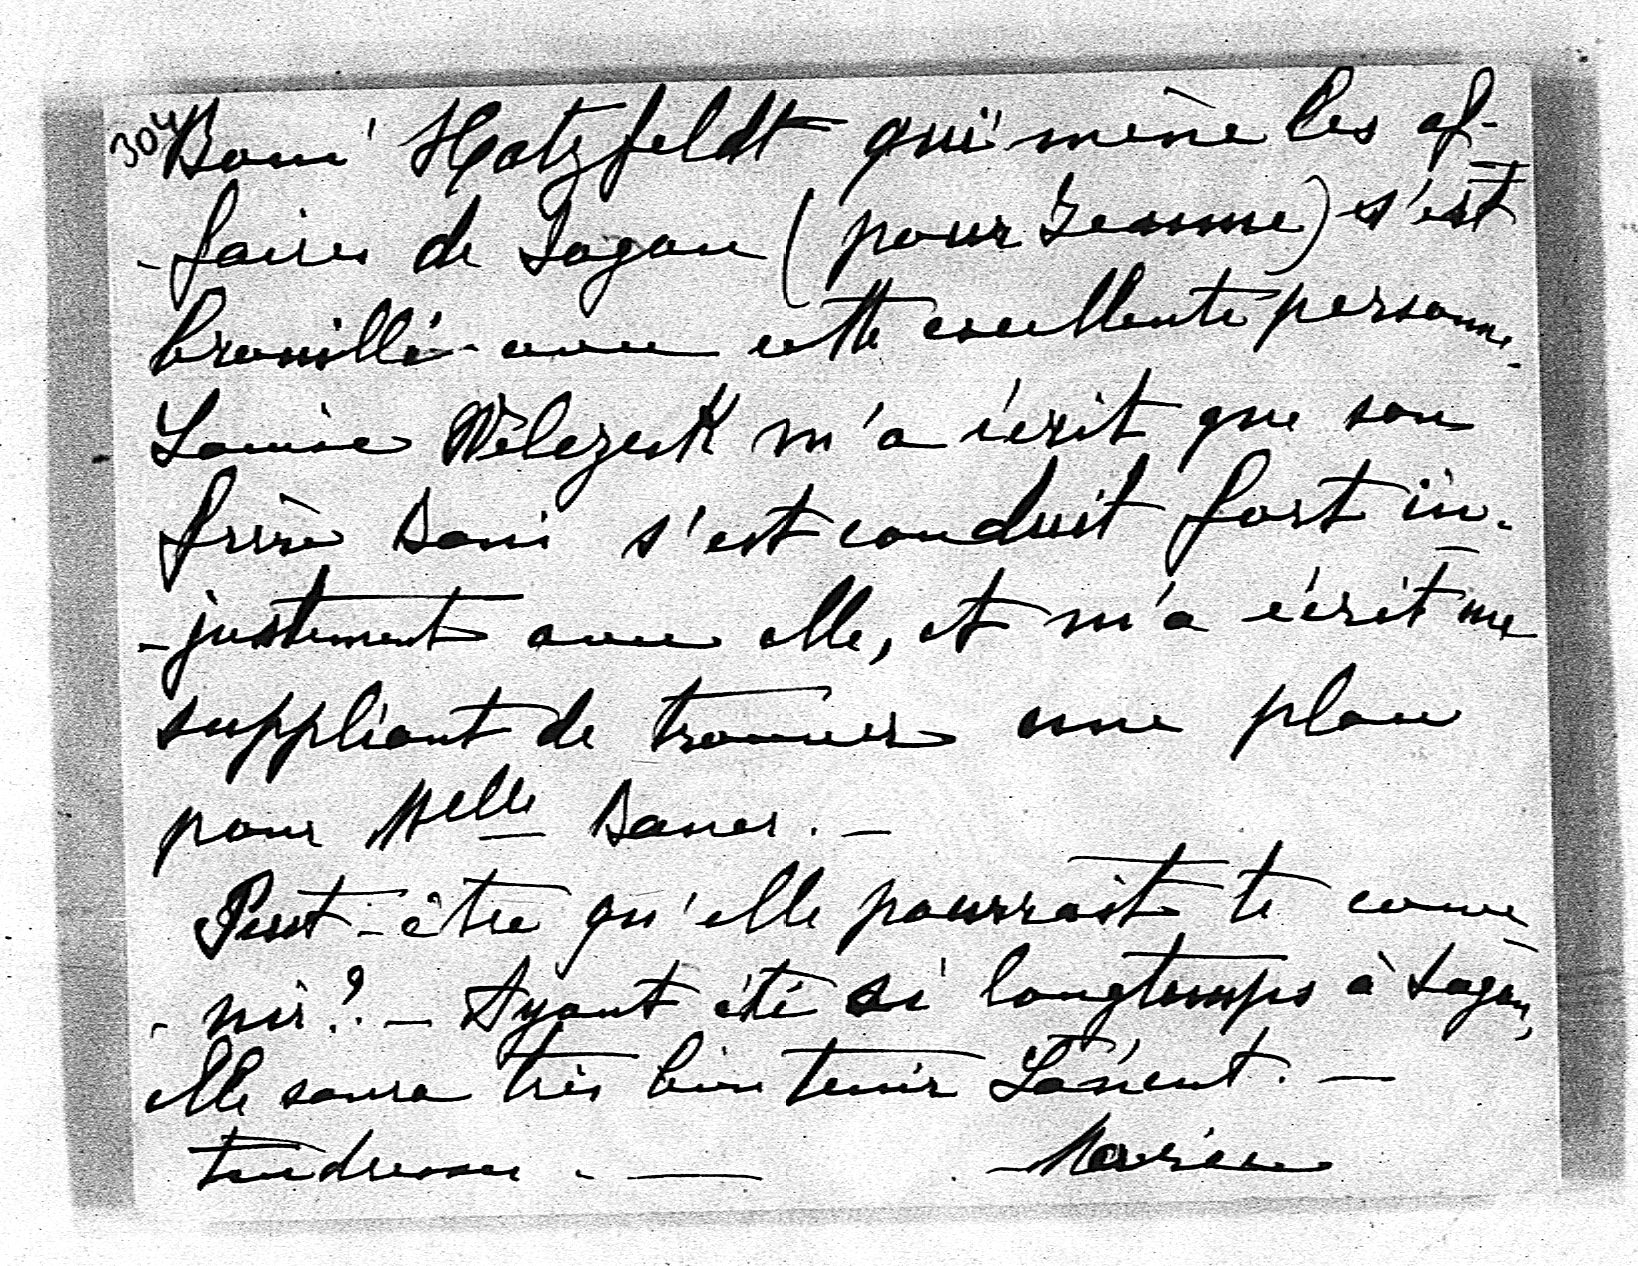 304
Boni Hatzfeldt qui mène les af-
-faires de Sagan (pour Jeanne) s'est
brouillé avec cette excellente personne.
Louise Welczeck m'a écrit que son
frère Boni s'est conduit fort in-
-justement avec elle, et m'a écrit me
suppliant de trouver une place
pour Melle
Peut-être qu'elle pourrait te conve
-nir? - Ayant été si longtemps à Sagan,
elle saura très bien tenir Łańcut. -
tendresses. -